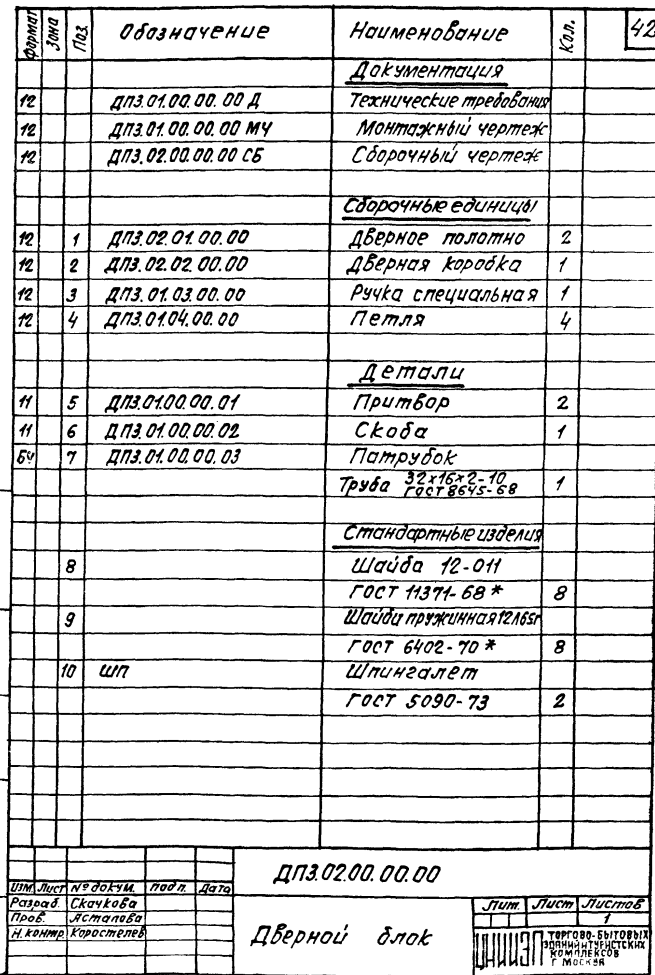 Формат Зона Поз. Обозначение Наименование Кол. 42
Документация
12 ДПЗ.01.00.00.00 Д Технические требования
12 ДПЗ.01.00.00.00 МЧ Монтажный чертеж
12 ДПЗ.02.00.00.00 СБ Сборочный чертеж
Сборочные единицы
12 1 ДПЗ.02.01.00.00 Дверное полотно 2
12 2 ДПЗ.02.02.00.00 Дверная коробка 1
12 3 ДПЗ.01.03.00.00 Ручка специальная 1
12 4 ДПЗ.01.04.00.00 Петля 4
Детали
11 5 ДПЗ.01.00.00.01 Притвор 2
11 6 ДПЗ.01.00.00.02 Скоба 1
БЧ 7 ДПЗ.01.00.00.03 Патрубок
Труба 32х16х2-10 ГОСТ 8645-68 1
Стандартные изделия
8 Шайба 12-011
ГОСТ 11371-68* 8
9 Шайба пружинная 12Л65Г
ГОСТ 6402-70* 8
10 ШП Шпингалет
ГОСТ 5090-73 2
ДПЗ.02.00.00.00
Изм. Лист № докум. Подп. Дата
Разраб. Скачкова
Пров. Асталова
Н.контр. Коростелев
Дверной блок
Лит. Лист Листов
1
ЦНИИЭП ТОРГОВО-БЫТОВЫХ
ЗДАНИЙ И ТУРИСТСКИХ
КОМПЛЕКСОВ
Г. МОСКВА